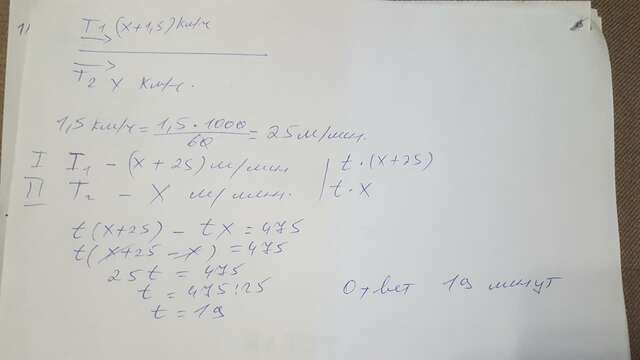 1)
T1 (x+1,5) км/ч
T2 x км/ч.
1,5 км/ч = 1,5 · 1000 / 60 = 25 м/мин.
I T1 – (x + 25) м/мин | t · (x+25)
II T2 – x м/мин. | t · x
t (x+25) – tx = 475
t (x+25 – x) = 475
25t = 475
t = 475:25
t = 19
Ответ 19 минут